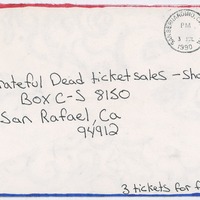 PM
1990
rateful Dead ticket sales - Sho
Box C-S 8150
San Rafael, Ca
94912
3 tickets for f